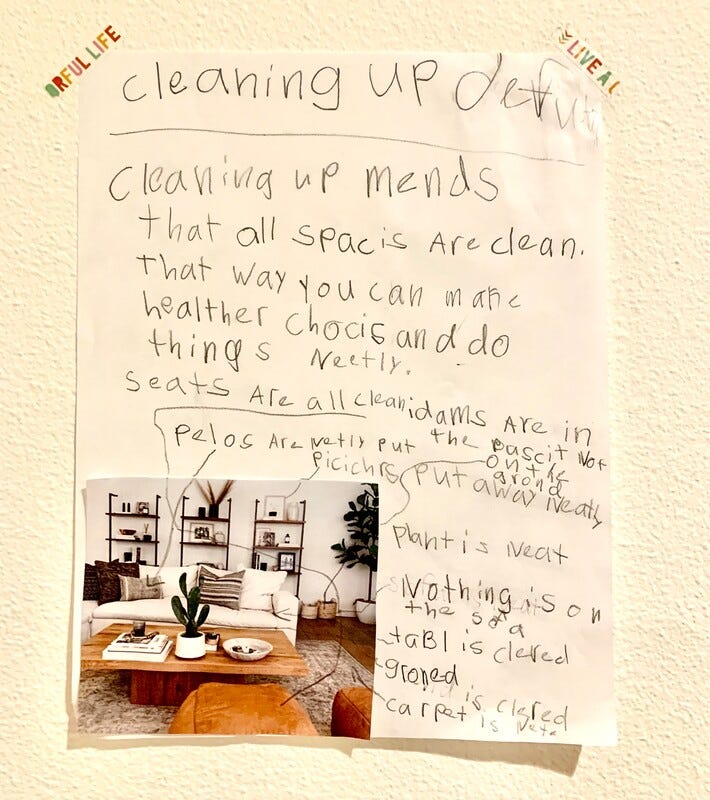 ORFUL LIFE
LIVE A
cleaning up
cleaning up mends
that all spacis Are clean.
that way you can make
healther chocis and do
things Neetly.
seats Are all clean
idams Are in
the bascit Not
on the
grond
pelos Are Netly put
picichrs put away Neatly
plant is Neat
Nothing is on
the sofa
taBl is clered
groned
is clered
carpet is